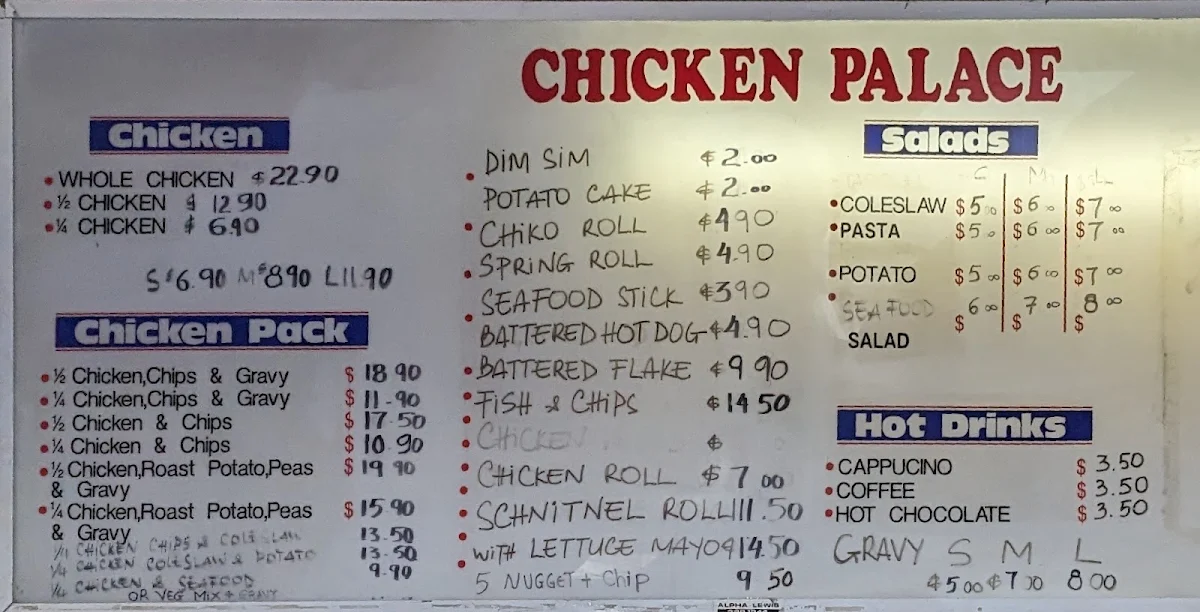 CHICKEN PALACE
Chicken
• WHOLE CHICKEN $22.90
• ½ CHICKEN $ 12 90
• ¼ CHICKEN $ 6.90
S $6.90 M $8 90 L 11.90
Chicken Pack
• ½ Chicken,Chips & Gravy $ 18 90
• ¼ Chicken,Chips & Gravy $ 11-90
• ½ Chicken & Chips $ 17.50
• ¼ Chicken & Chips $ 10.90
• ½ Chicken,Roast Potato,Peas $ 19 90
& Gravy
• ¼ Chicken,Roast Potato,Peas $ 15 90
& Gravy
CHICKEN CHIPS & COLESLAW 13.50
¼ CHICKEN COLESLAW & POTATO 13.50
¼ CHICKEN & SEAFOOD 9.90
OR VEG MIX + GRAVY
• DIM SIM $2.00
POTATO CAKE $2.00
• CHIKO ROLL $4 90
• SPRING ROLL $4.90
• SEAFOOD STICK $3 90
BATTERED HOT DOG $4.90
• BATTERED FLAKE $9 90
• FISH & CHIPS $14 50
• CHICKEN $
• CHICKEN ROLL $ 7 00
• SCHNITNEL ROLL 11.50
• WITH LETTUCE MAYO $14.50
5 NUGGET + CHIP 9 50
Salads
S M L
• COLESLAW $5 00 $6 00 $7 00
• PASTA $5 0 $6 00 $7 00
• POTATO $5 00 $6 00 $7 00
• SEAFOOD 6 00 7 00 8 00
$ $ $
SALAD
Hot Drinks
• CAPPUCINO $ 3.50
• COFFEE $ 3.50
• HOT CHOCOLATE $ 3.50
GRAVY S M L
$5 00 $7 00 8 00
ALPHA LEWIS